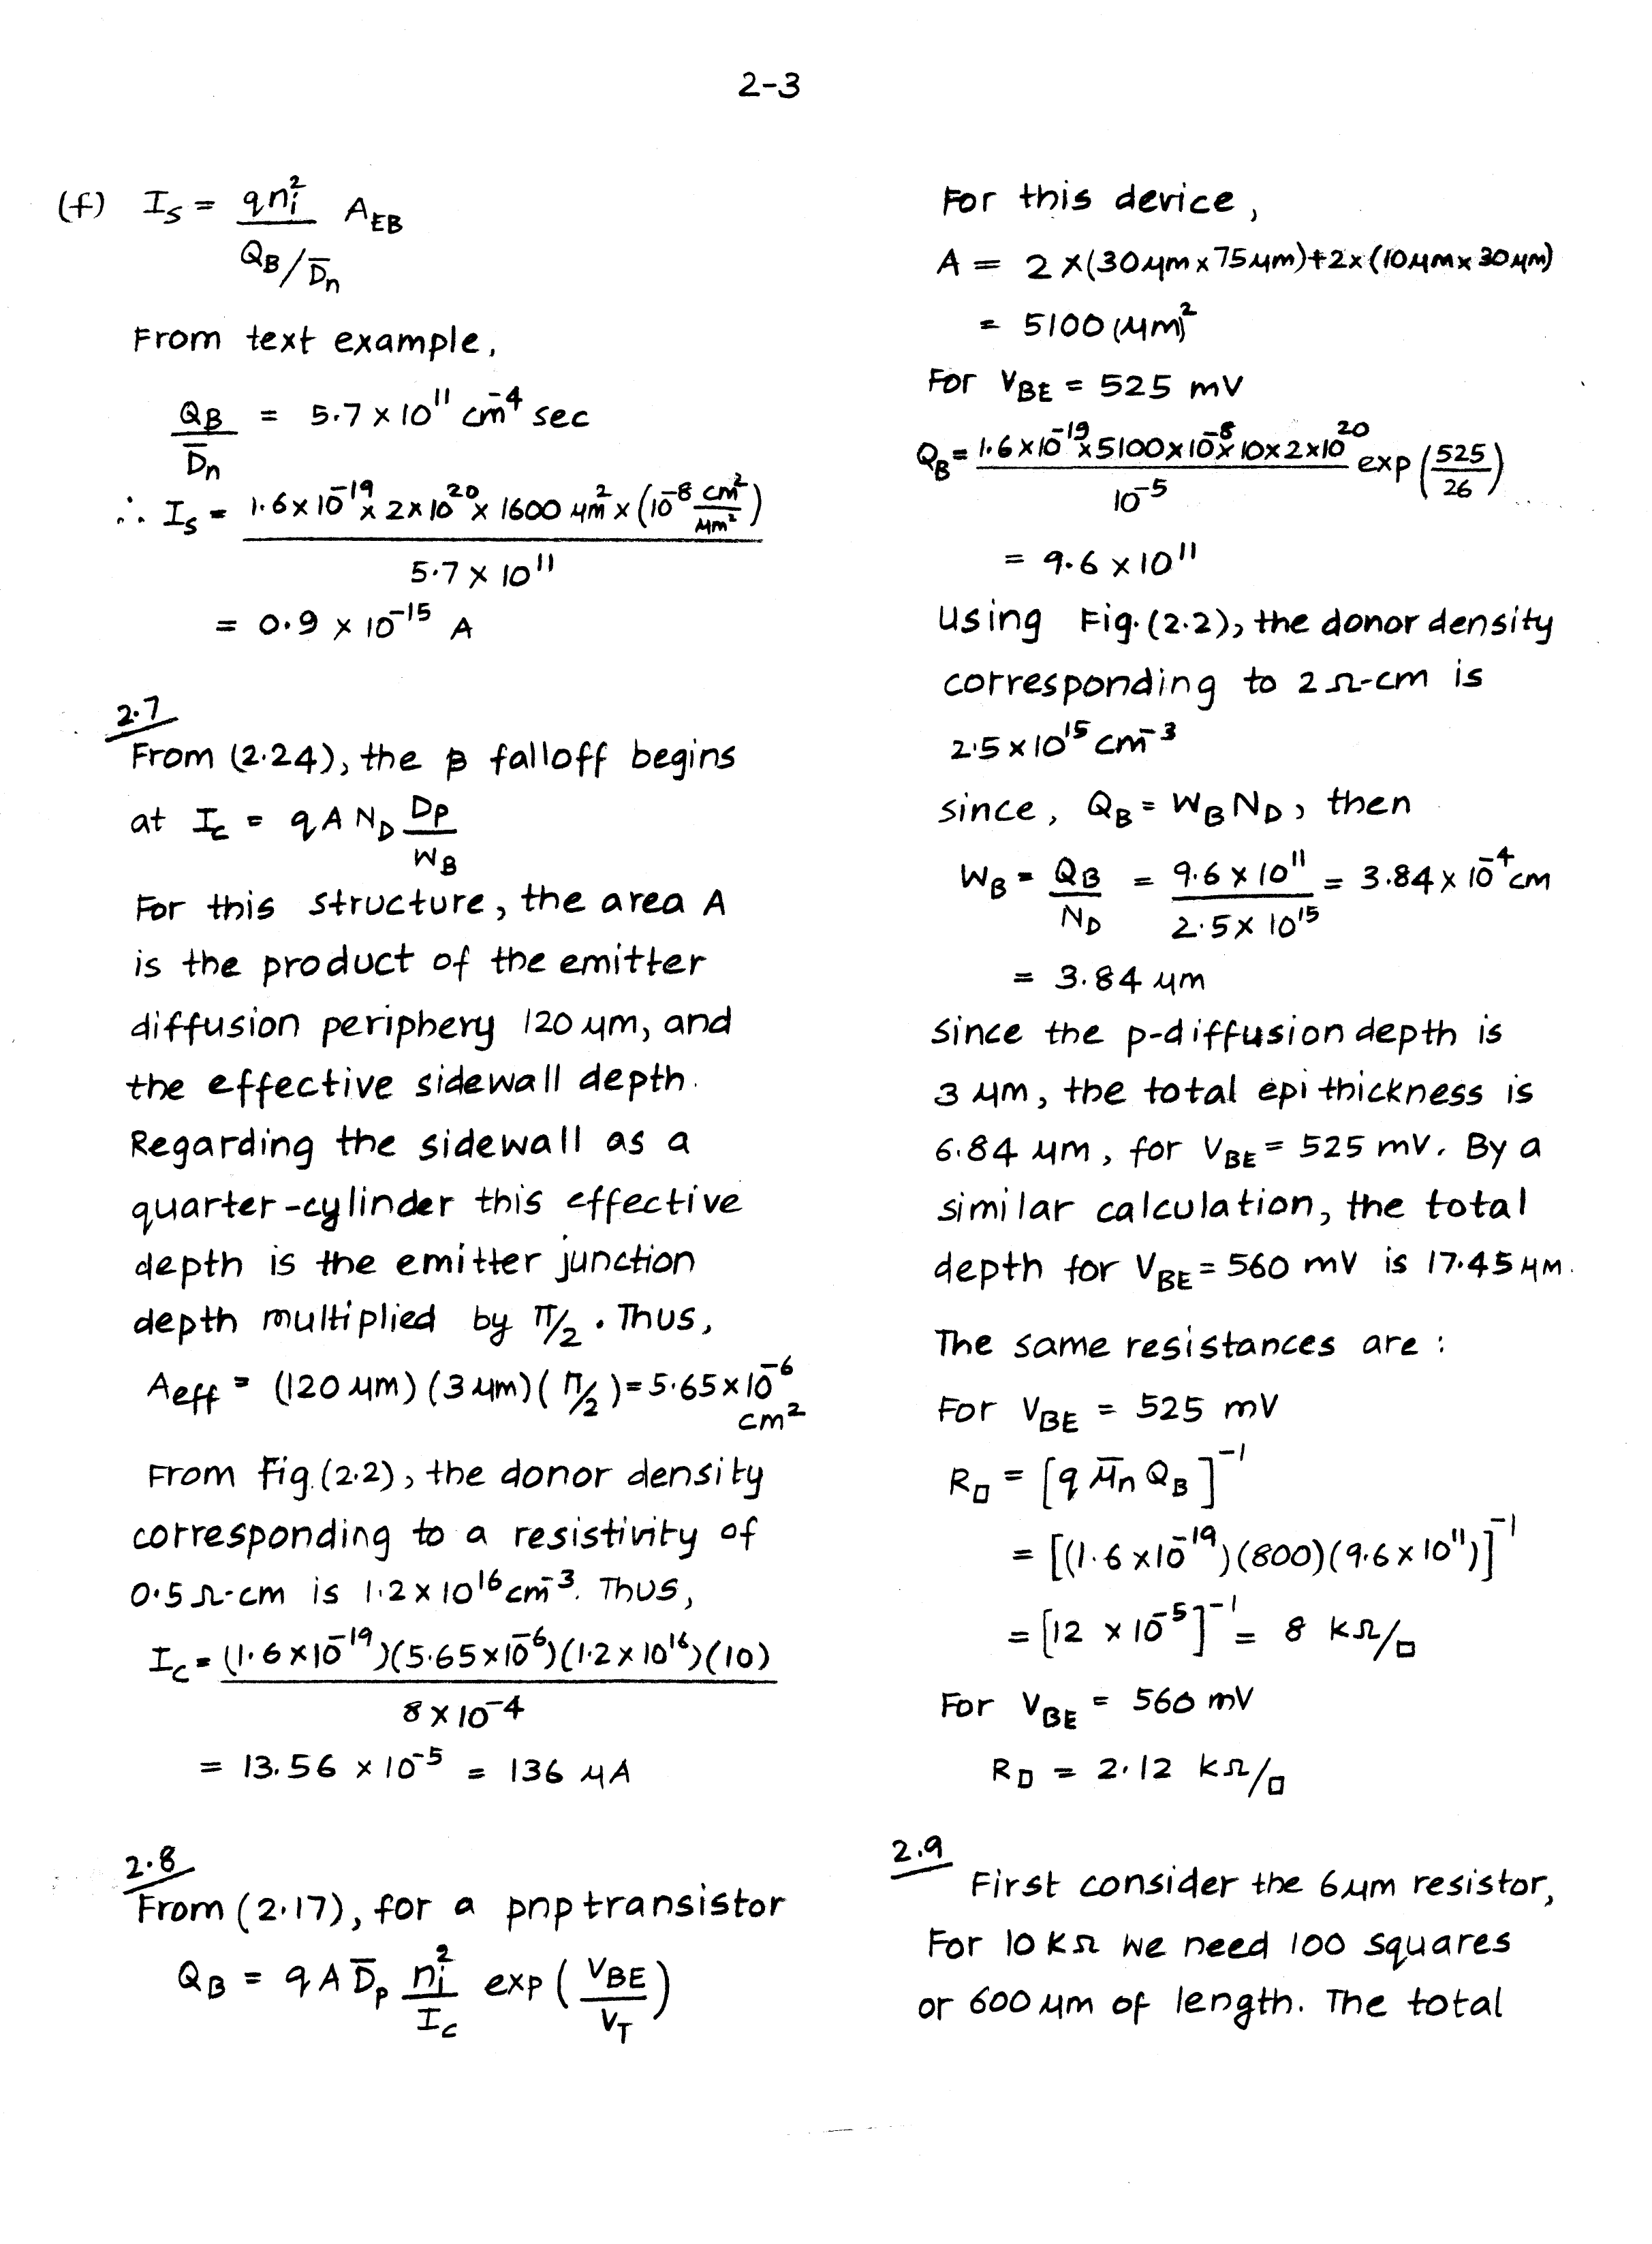 2-3
(f) I_S = qn_i^2 / (Q_B/D̄_n) A_EB
From text example,
Q_B / D̄_n = 5.7 × 10^11 cm^-4 sec
∴ I_S = 1.6×10^-19 × 2×10^20 × 1600 μm^2 × (10^-8 cm^2/μm^2) / 5.7 × 10^11
= 0.9 × 10^-15 A
2.7
From (2.24), the β falloff begins
at I_C = qAN_D D_P / W_B
For this structure, the area A
is the product of the emitter
diffusion periphery 120 μm, and
the effective sidewall depth.
Regarding the sidewall as a
quarter-cylinder this effective
depth is the emitter junction
depth multiplied by π/2. Thus,
A_eff = (120 μm)(3 μm)(π/2) = 5.65×10^-6
cm^2
From Fig.(2.2), the donor density
corresponding to a resistivity of
0.5 Ω-cm is 1.2 × 10^16 cm^-3. Thus,
I_C = (1.6×10^-19)(5.65×10^-6)(1.2×10^16)(10) / 8 × 10^-4
= 13.56 × 10^-5 = 136 μA
2.8
From (2.17), for a pnp transistor
Q_B = qAD̄_p n_i^2 / I_C exp(V_BE / V_T)
For this device,
A = 2×(30μm×75μm)+2×(10μm×30μm)
= 5100 (μm)^2
For V_BE = 525 mV
Q_B = 1.6×10^-19×5100×10^-8×10×2×10^20 / 10^-5 exp(525/26)
= 9.6 × 10^11
Using Fig.(2.2), the donor density
corresponding to 2 Ω-cm is
2.5 × 10^15 cm^-3
since, Q_B = W_B N_D, then
W_B = Q_B / N_D = 9.6 × 10^11 / 2.5 × 10^15 = 3.84 × 10^-4 cm
= 3.84 μm
Since the p-diffusion depth is
3 μm, the total epi thickness is
6.84 μm, for V_BE = 525 mV. By a
similar calculation, the total
depth for V_BE = 560 mV is 17.45 μM.
The same resistances are :
For V_BE = 525 mV
R_□ = [q μ̄_n Q_B]^-1
= [(1.6×10^-19)(800)(9.6×10^11)]^-1
= [12 × 10^-5]^-1 = 8 kΩ/□
For V_BE = 560 mV
R_□ = 2.12 kΩ/□
2.9
First consider the 6μm resistor,
For 10 KΩ we need 100 squares
or 600 μm of length. The total